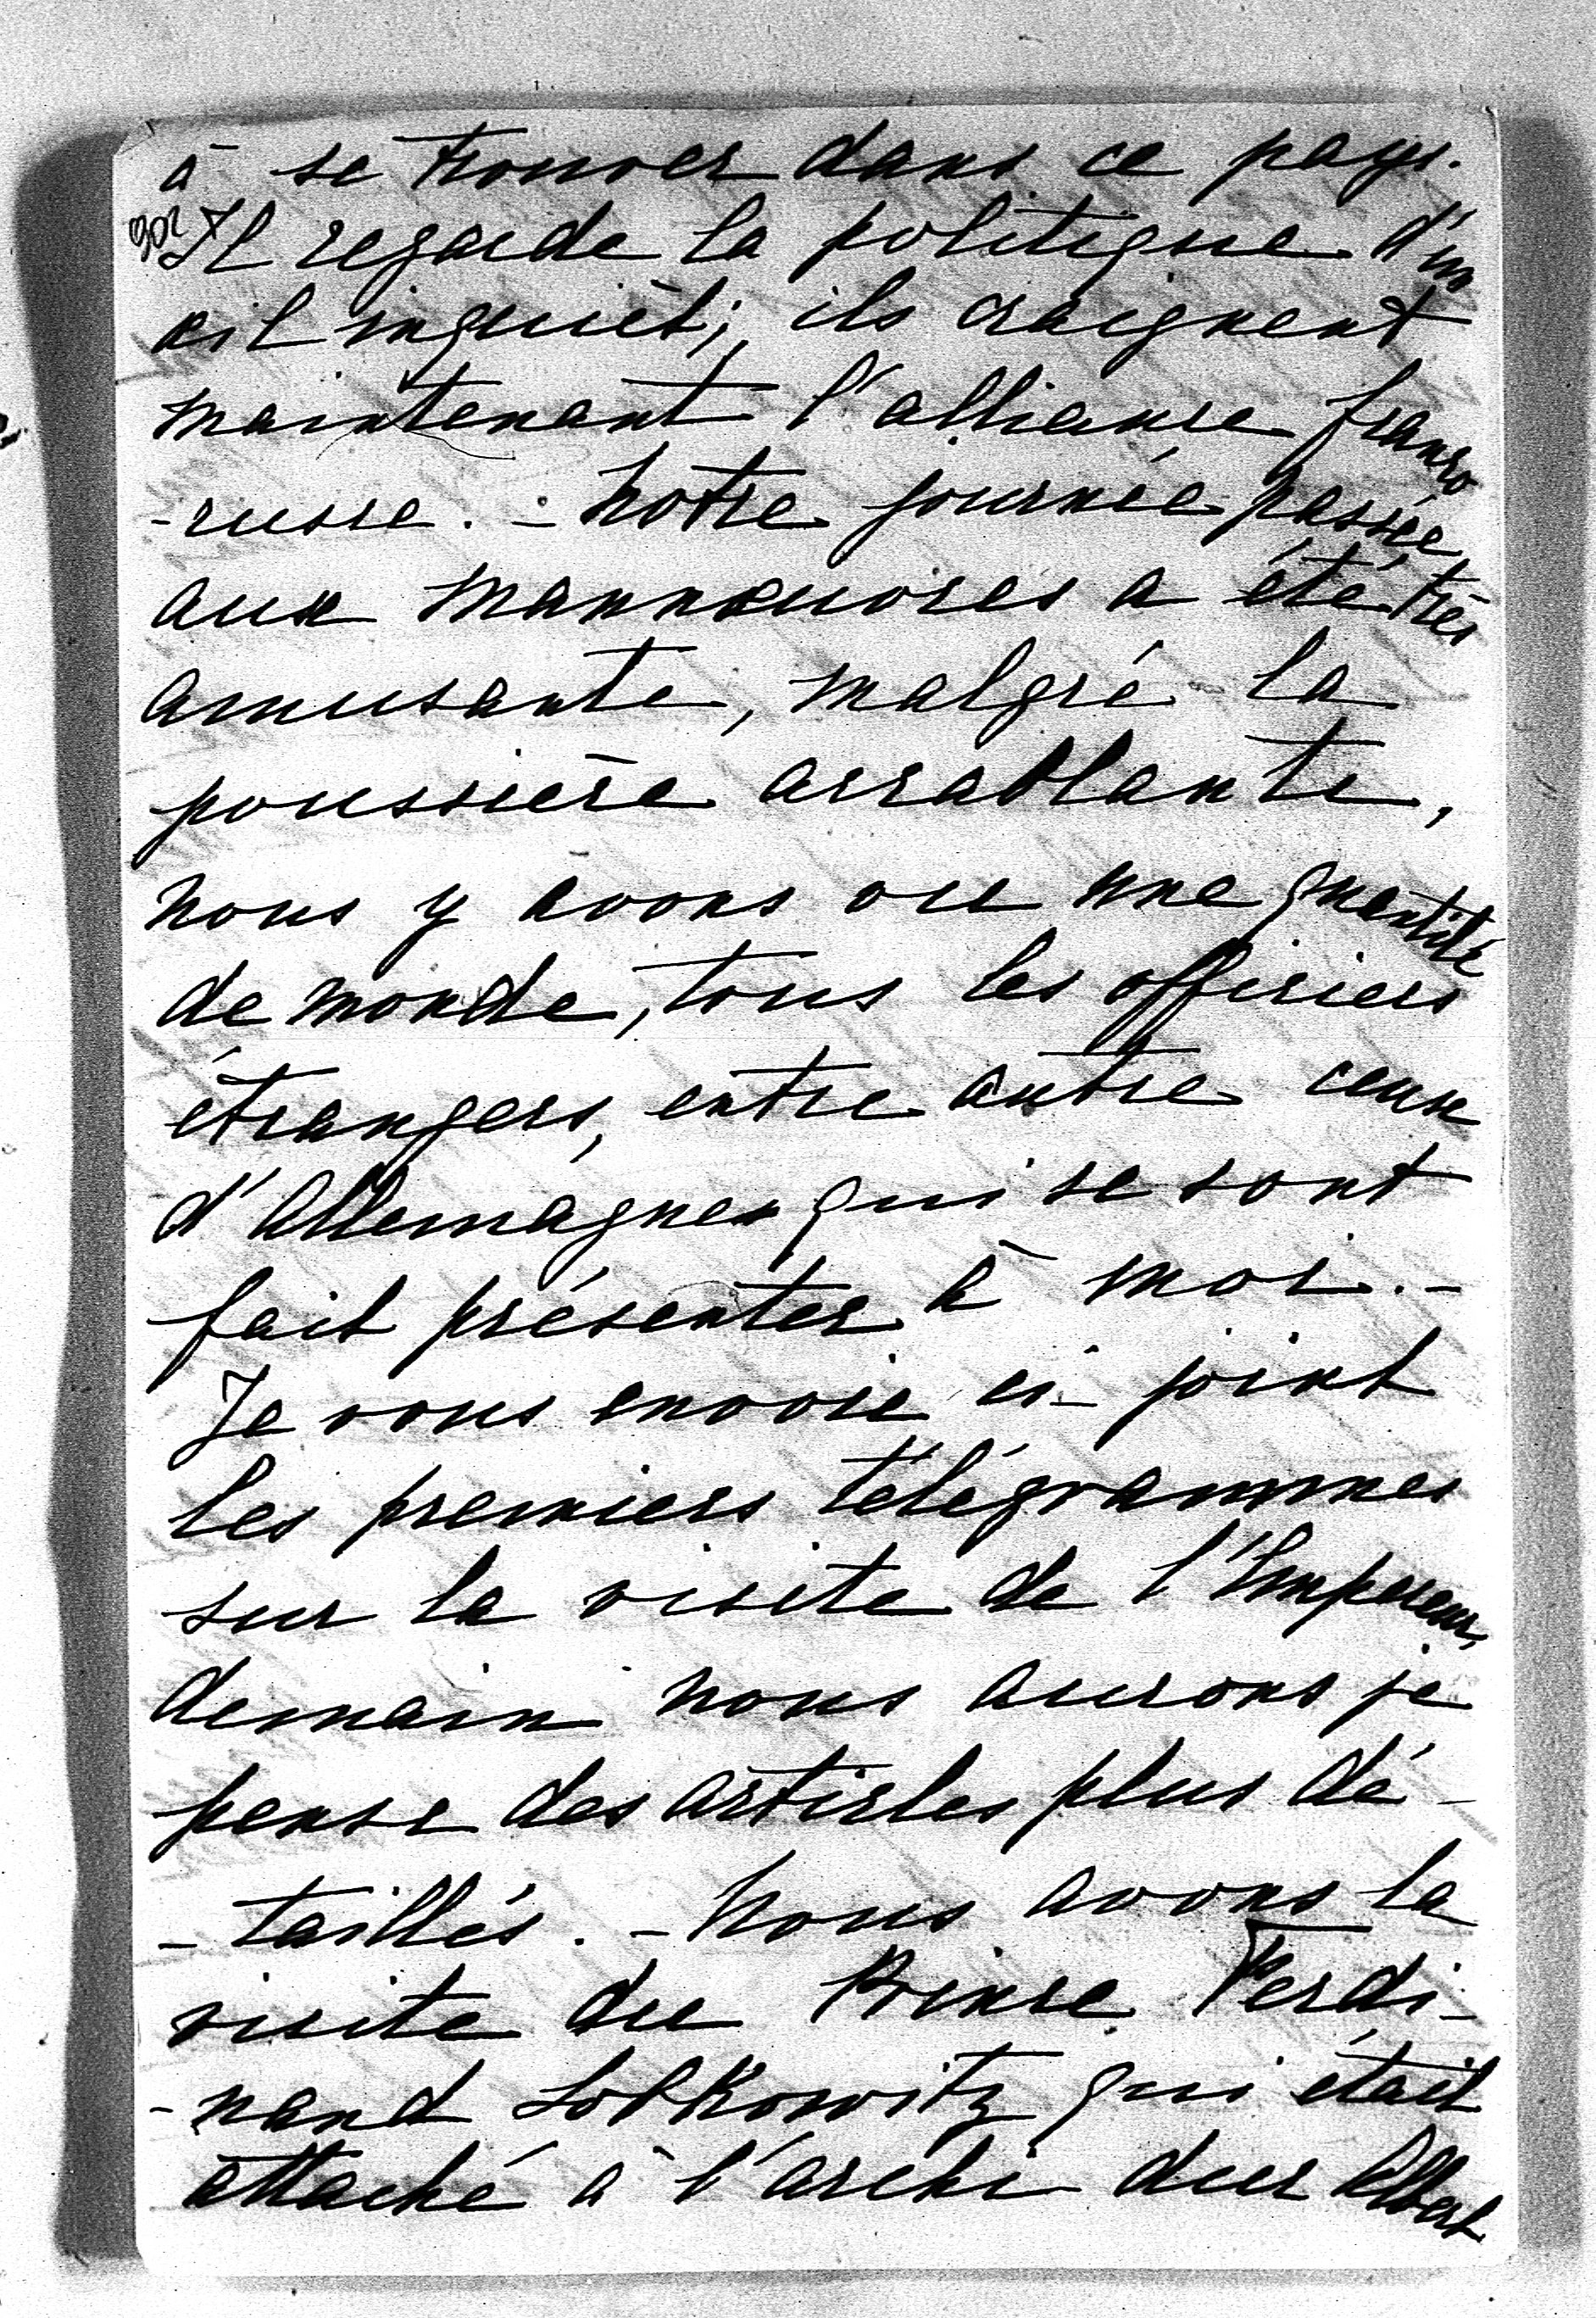 à se trouver dans ce pays.
Il regarde la politique d'un
œil inquièt; ils craignent
maintenant l'alliance franco
-russe. - Notre journée passée
aux mannœuvres a été très
amusante, malgré la
poussière accablante,
nous y avons vu une quantité
de monde, tous les officiers
étrangers, entre autre ceux
d'Allemagne qui se sont
fait présenter à moi. -
Je vous envoie ci-joint
les premiers télégrammes
sur la visite de l'Empereur,
demain nous aurons je
pense des articles plus dé-
-taillés. - Nous avons la
visite du Prince Ferdi-
-nand Lobkowitz qui était
attaché à l'archi-duc Albert